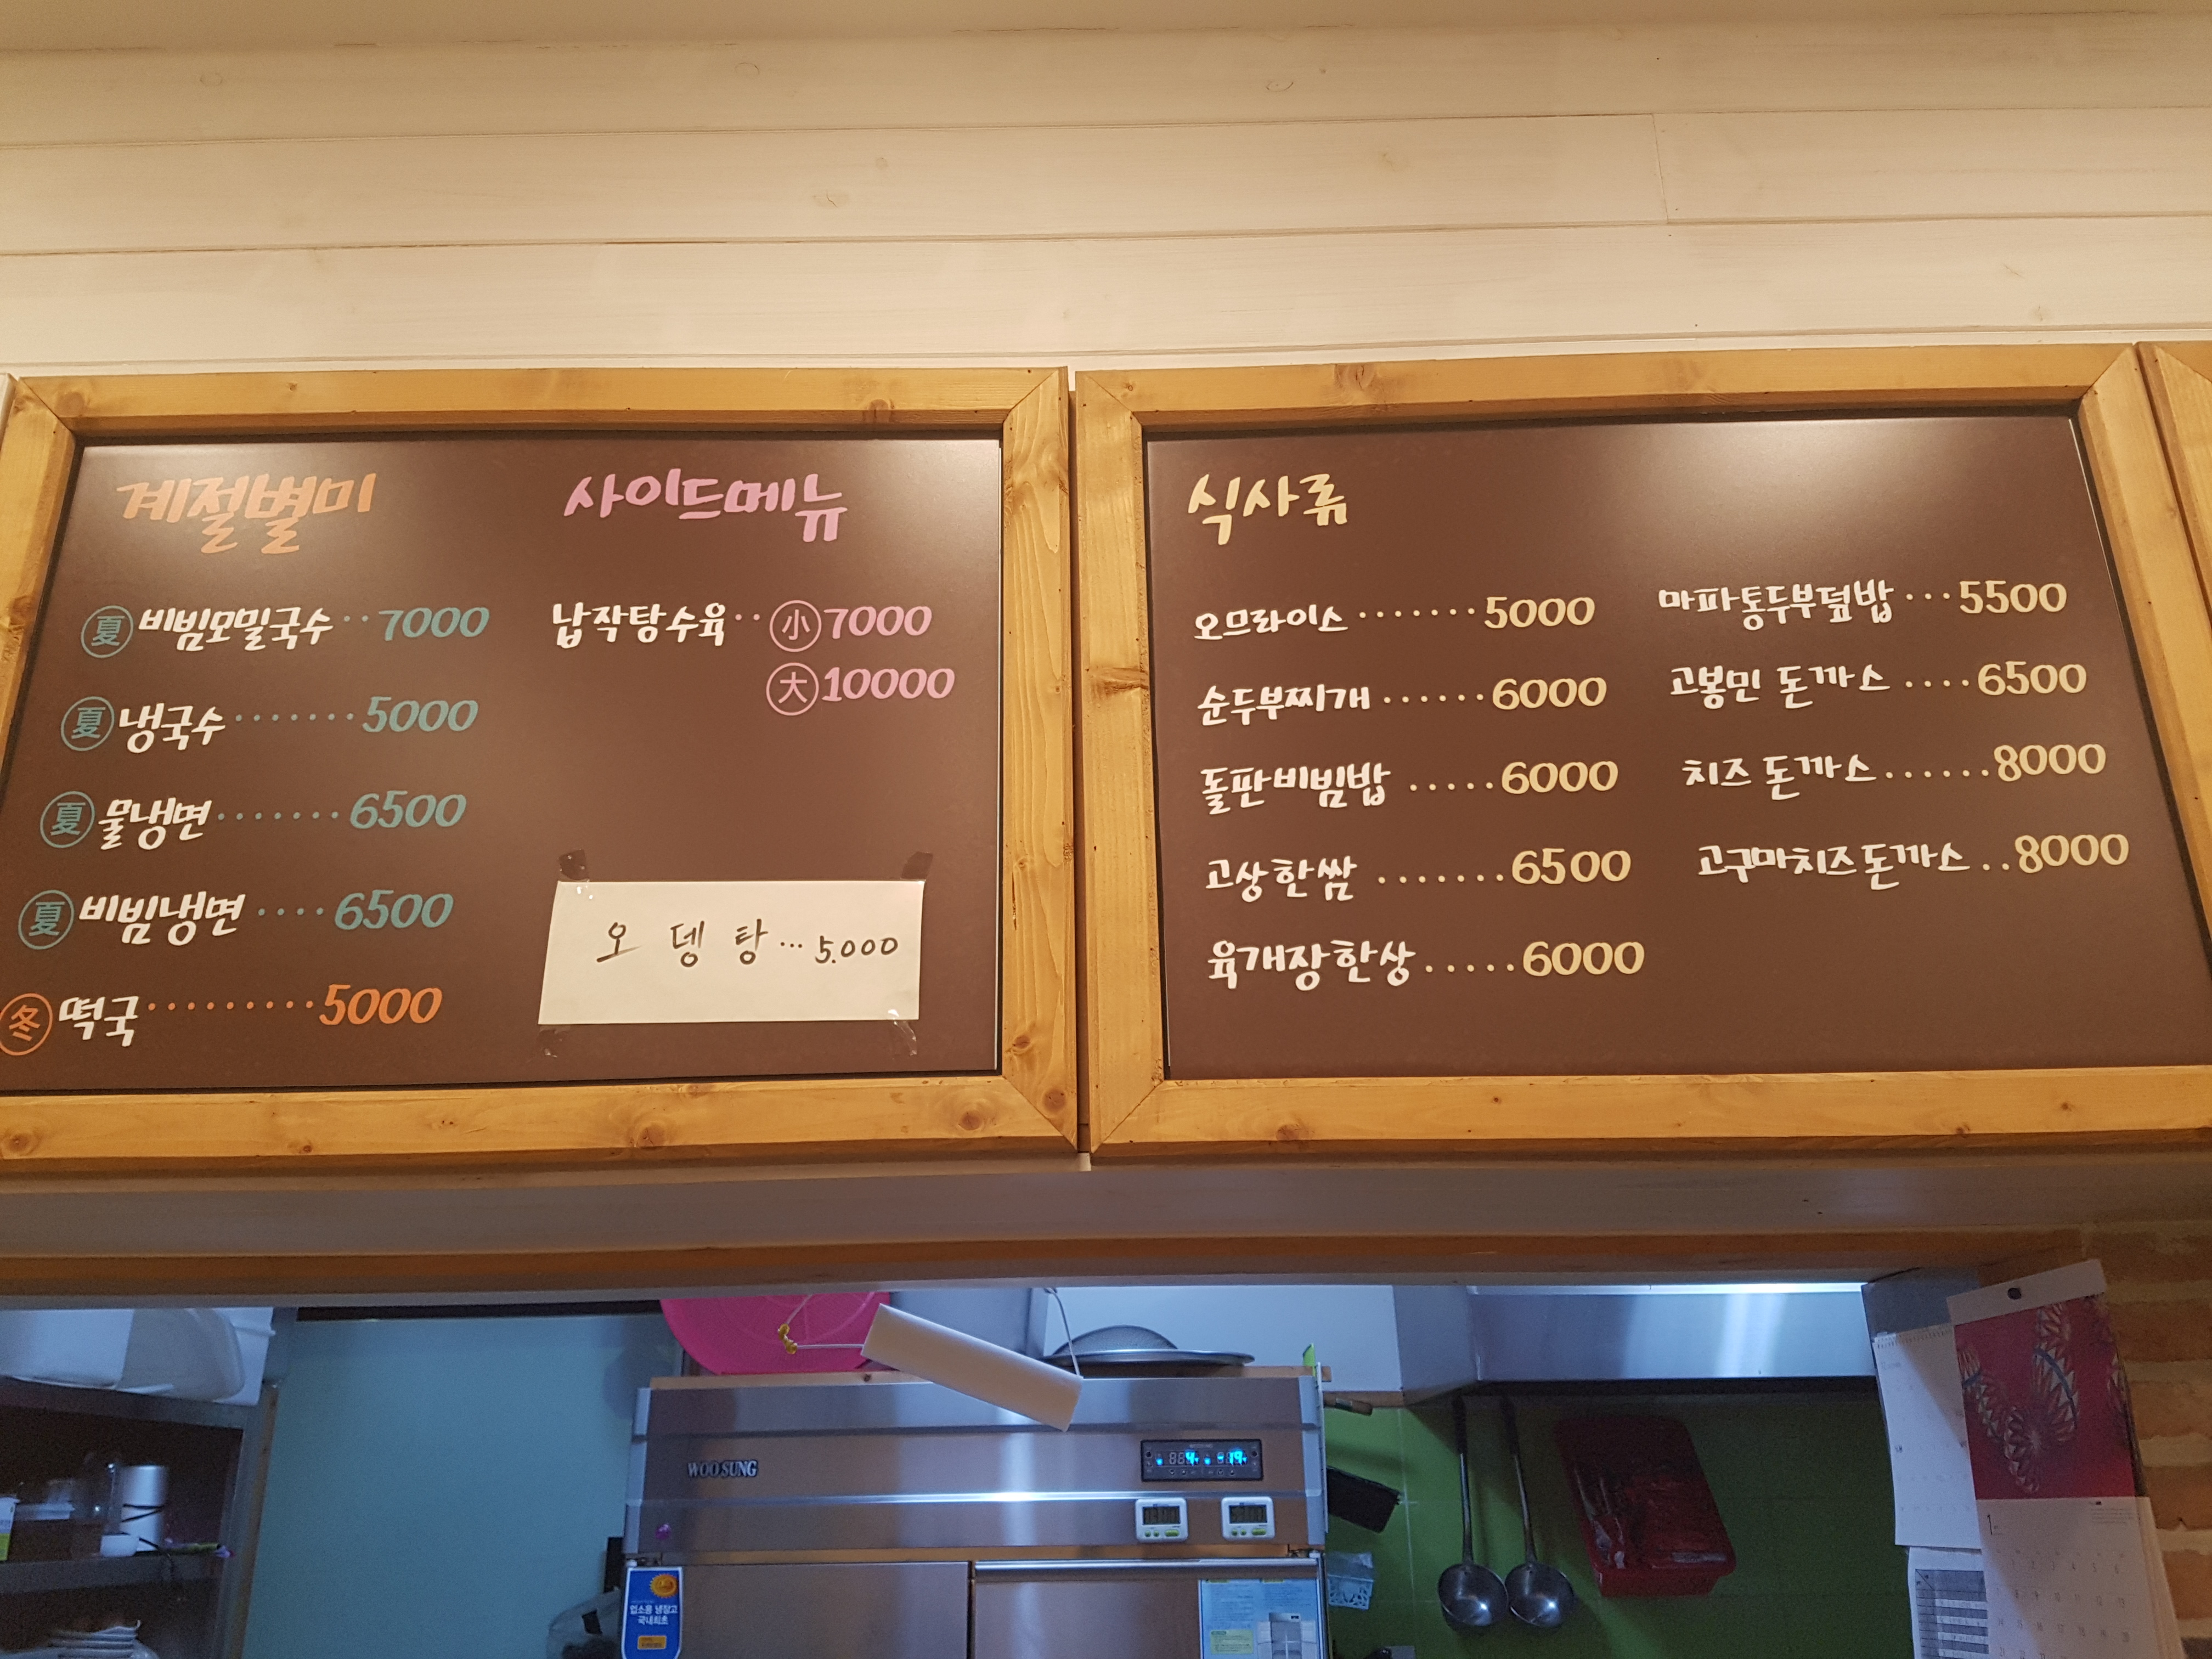 계절별미
夏 비빔모밀국수··7000
夏 냉국수·······5000
夏 물냉면·······6500
夏 비빔냉면····6500
冬 떡국·········5000
사이드메뉴
납작탕수육··小 7000
大 10000
오뎅탕...5.000
식사류
오므라이스·······5000
순두부찌개······6000
돌판비빔밥·····6000
고상한쌈·······6500
육개장한상.....6000
마파통두부덮밥···5500
고봉민 돈까스····6500
치즈 돈까스......8000
고구마치즈돈까스..8000
WOOSUNG
업소용 냉장고
국내최초